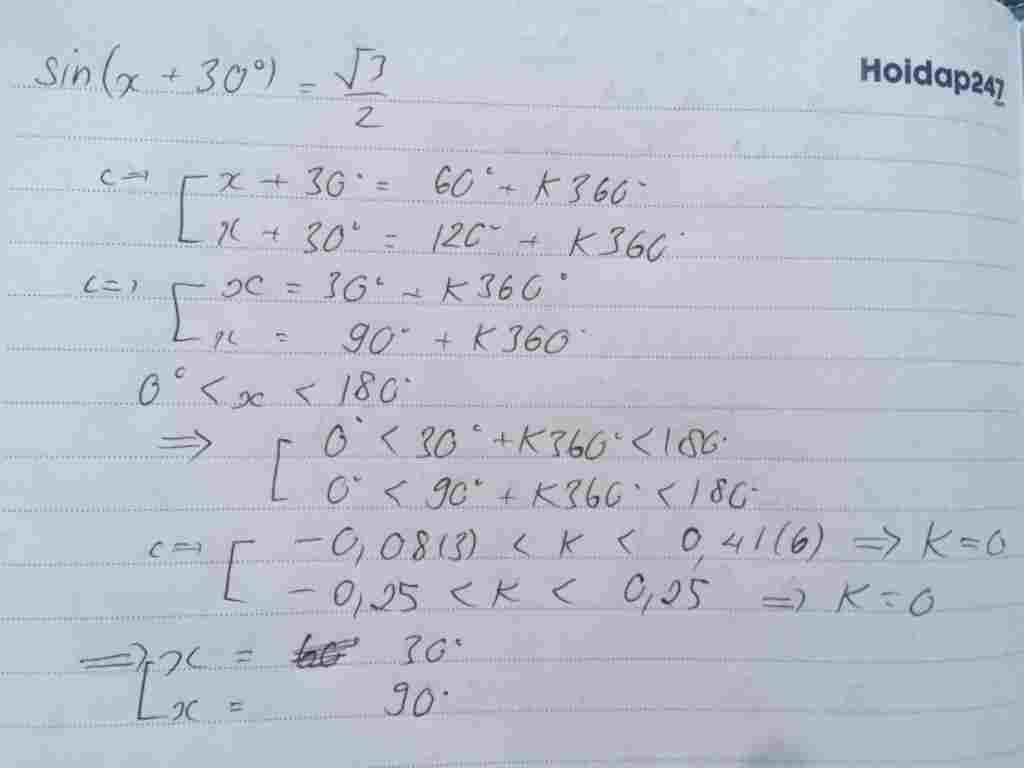 Hoidap247
sin(x + 30°) = √3/2
<=> [ x + 30° = 60° + K360°
x + 30° = 120° + K360°
<=> [ x = 30° + K360°
x = 90° + K360°
0° < x < 180°
=> [ 0° < 30° + K360° < 180°
0° < 90° + K360° < 180°
<=> [ -0,08(3) < K < 0,41(6) => K = 0
-0,25 < K < 0,25 => K = 0
=> [ x = 30°
x = 90°